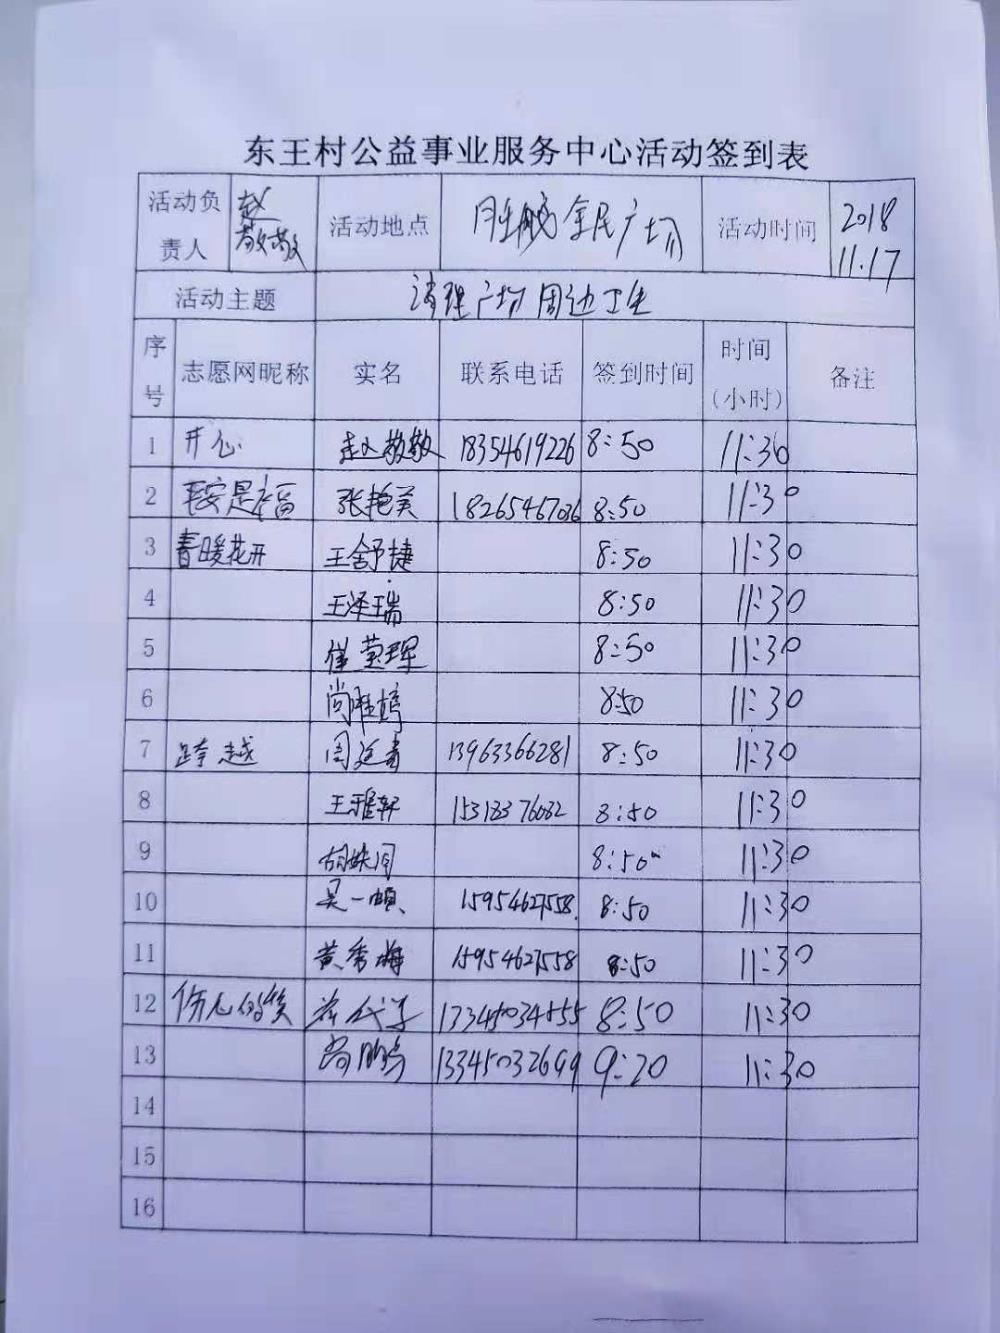 东王村公益事业服务中心活动签到表
活动负责人 赵敬敬 活动地点 全民广场 活动时间 2018 11.17
活动主题 清理广场周边卫生
序号 志愿网昵称 实名 联系电话 签到时间 时间(小时) 备注
1 开心 赵敬敬 18354619226 8:50 11:30
2 平安是福 张艳美 18265467036 8:50 11:30
3 春暖花开 王舒捷 8:50 11:30
4 王泽瑞 8:50 11:30
5 崔莹珲 8:50 11:30
6 尚雅婷 8:50 11:30
7 跨越 周延春 13963366281 8:50 11:30
8 王雅轩 15318376082 8:50 11:30
9 8:50 11:30
10 吴一 15954627558 8:50 11:30
11 黄秀梅 15954627558 8:50 11:30
12 伤心的笑 13345034555 8:50 11:30
13 尚鹏 13345032699 9:20 11:30
14
15
16